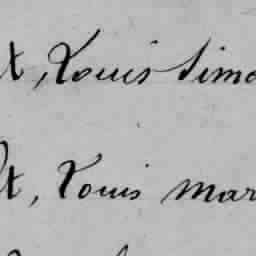 t, Louis Simo
t, Louis mar